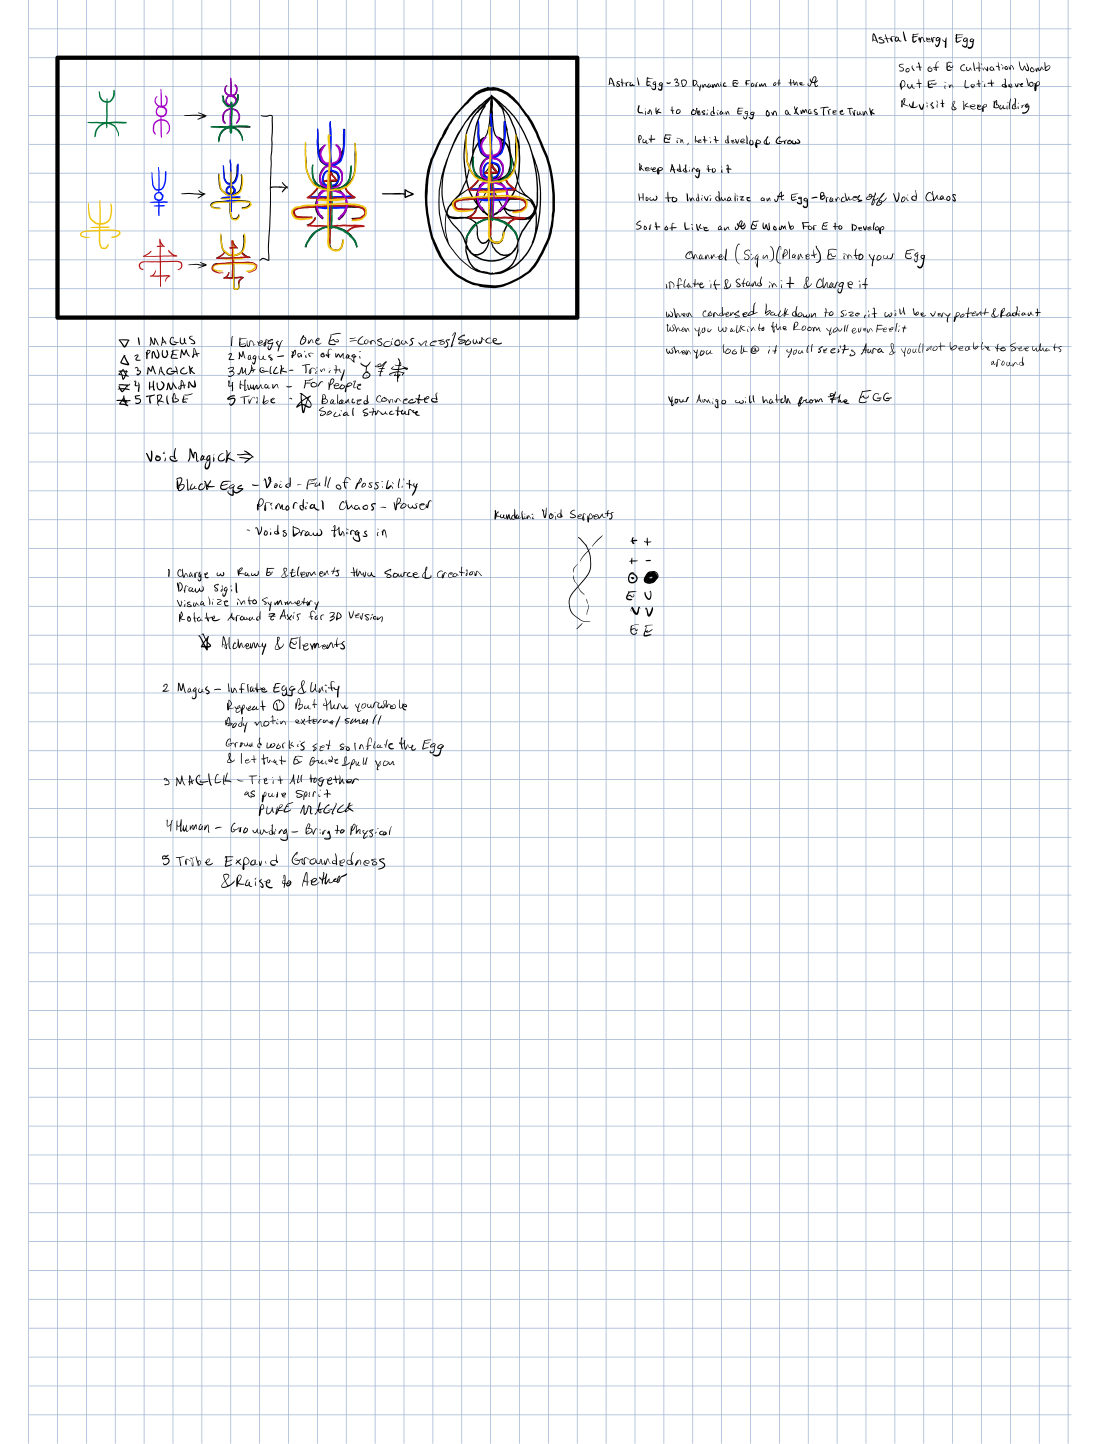 Astral Energy Egg
Sort of E Cultivation Womb
Put E in Let it develop
Revisit & Keep Building
Astral Egg - 3D Dynamic E Form of the
Link to obsidian Egg on a Xmas Tree Trunk
Put E in, let it develop & Grow
Keep Adding to it
How to Individualize an Egg - Branches off Void Chaos
Sort of Like an E Womb For E to Develop
Channel (Sign)(Planet) E into your Egg
inflate it & Stand in it & Charge it
when condensed back down to size, it will be very potent & Radiant
when you walk into the Room youll even Feel it
when you look @ it youll see its Aura & youll not be able to see whats
around
your Amigo will hatch from the EGG
1 MAGUS
2 PNUEMA
3 MAGICK
4 HUMAN
5 TRIBE
1 Energy One E = Consciousness/Source
2 Magus - Pair of magi
3 MAGICK - Trinity
4 Human - For People
5 Tribe - Balanced Connected
Social Structure
Void Magick ⇒
Black Egg - Void - Full of Possibility
Primordial Chaos - Power
- Voids Draw things in
Kundalini Void Serpents
+ +
+ -
E V
V V
E E
1 Charge w Raw E & Elements thru Source & Creation
Draw Sigil
Visualize into Symmetry
Rotate Around Z Axis for 3D Version
Alchemy & Elements
2 Magus - Inflate Egg & Unify
Repeat ① But thru your whole
Body not in external small
Groundwork is set so Inflate the Egg
& let that E Guide & pull you
3 MAGICK - Tie it All together
as pure Spirit
PURE MAGICK
4 Human - Grounding - Bring to Physical
5 Tribe Expand Groundedness
& Raise to Aether